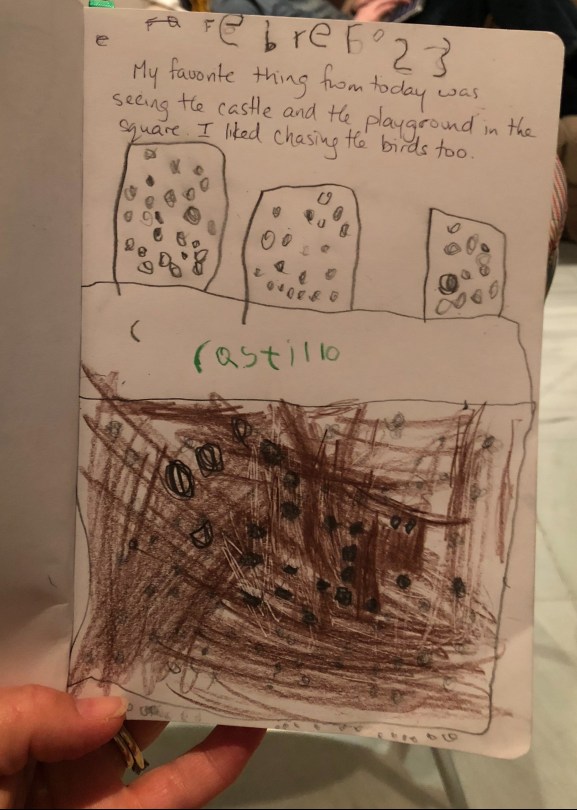 Febrero 23
My favorite thing from today was
seeing the castle and the playground in the
square. I liked chasing the birds too.
Castillo